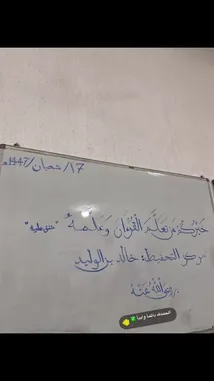 ١٧/شعبان/1447هـ
خيركم من تعلم القرآن وعلمه "متفق عليه"
مركز التحفيظ: خالد بن الوليد
رضي الله عنه